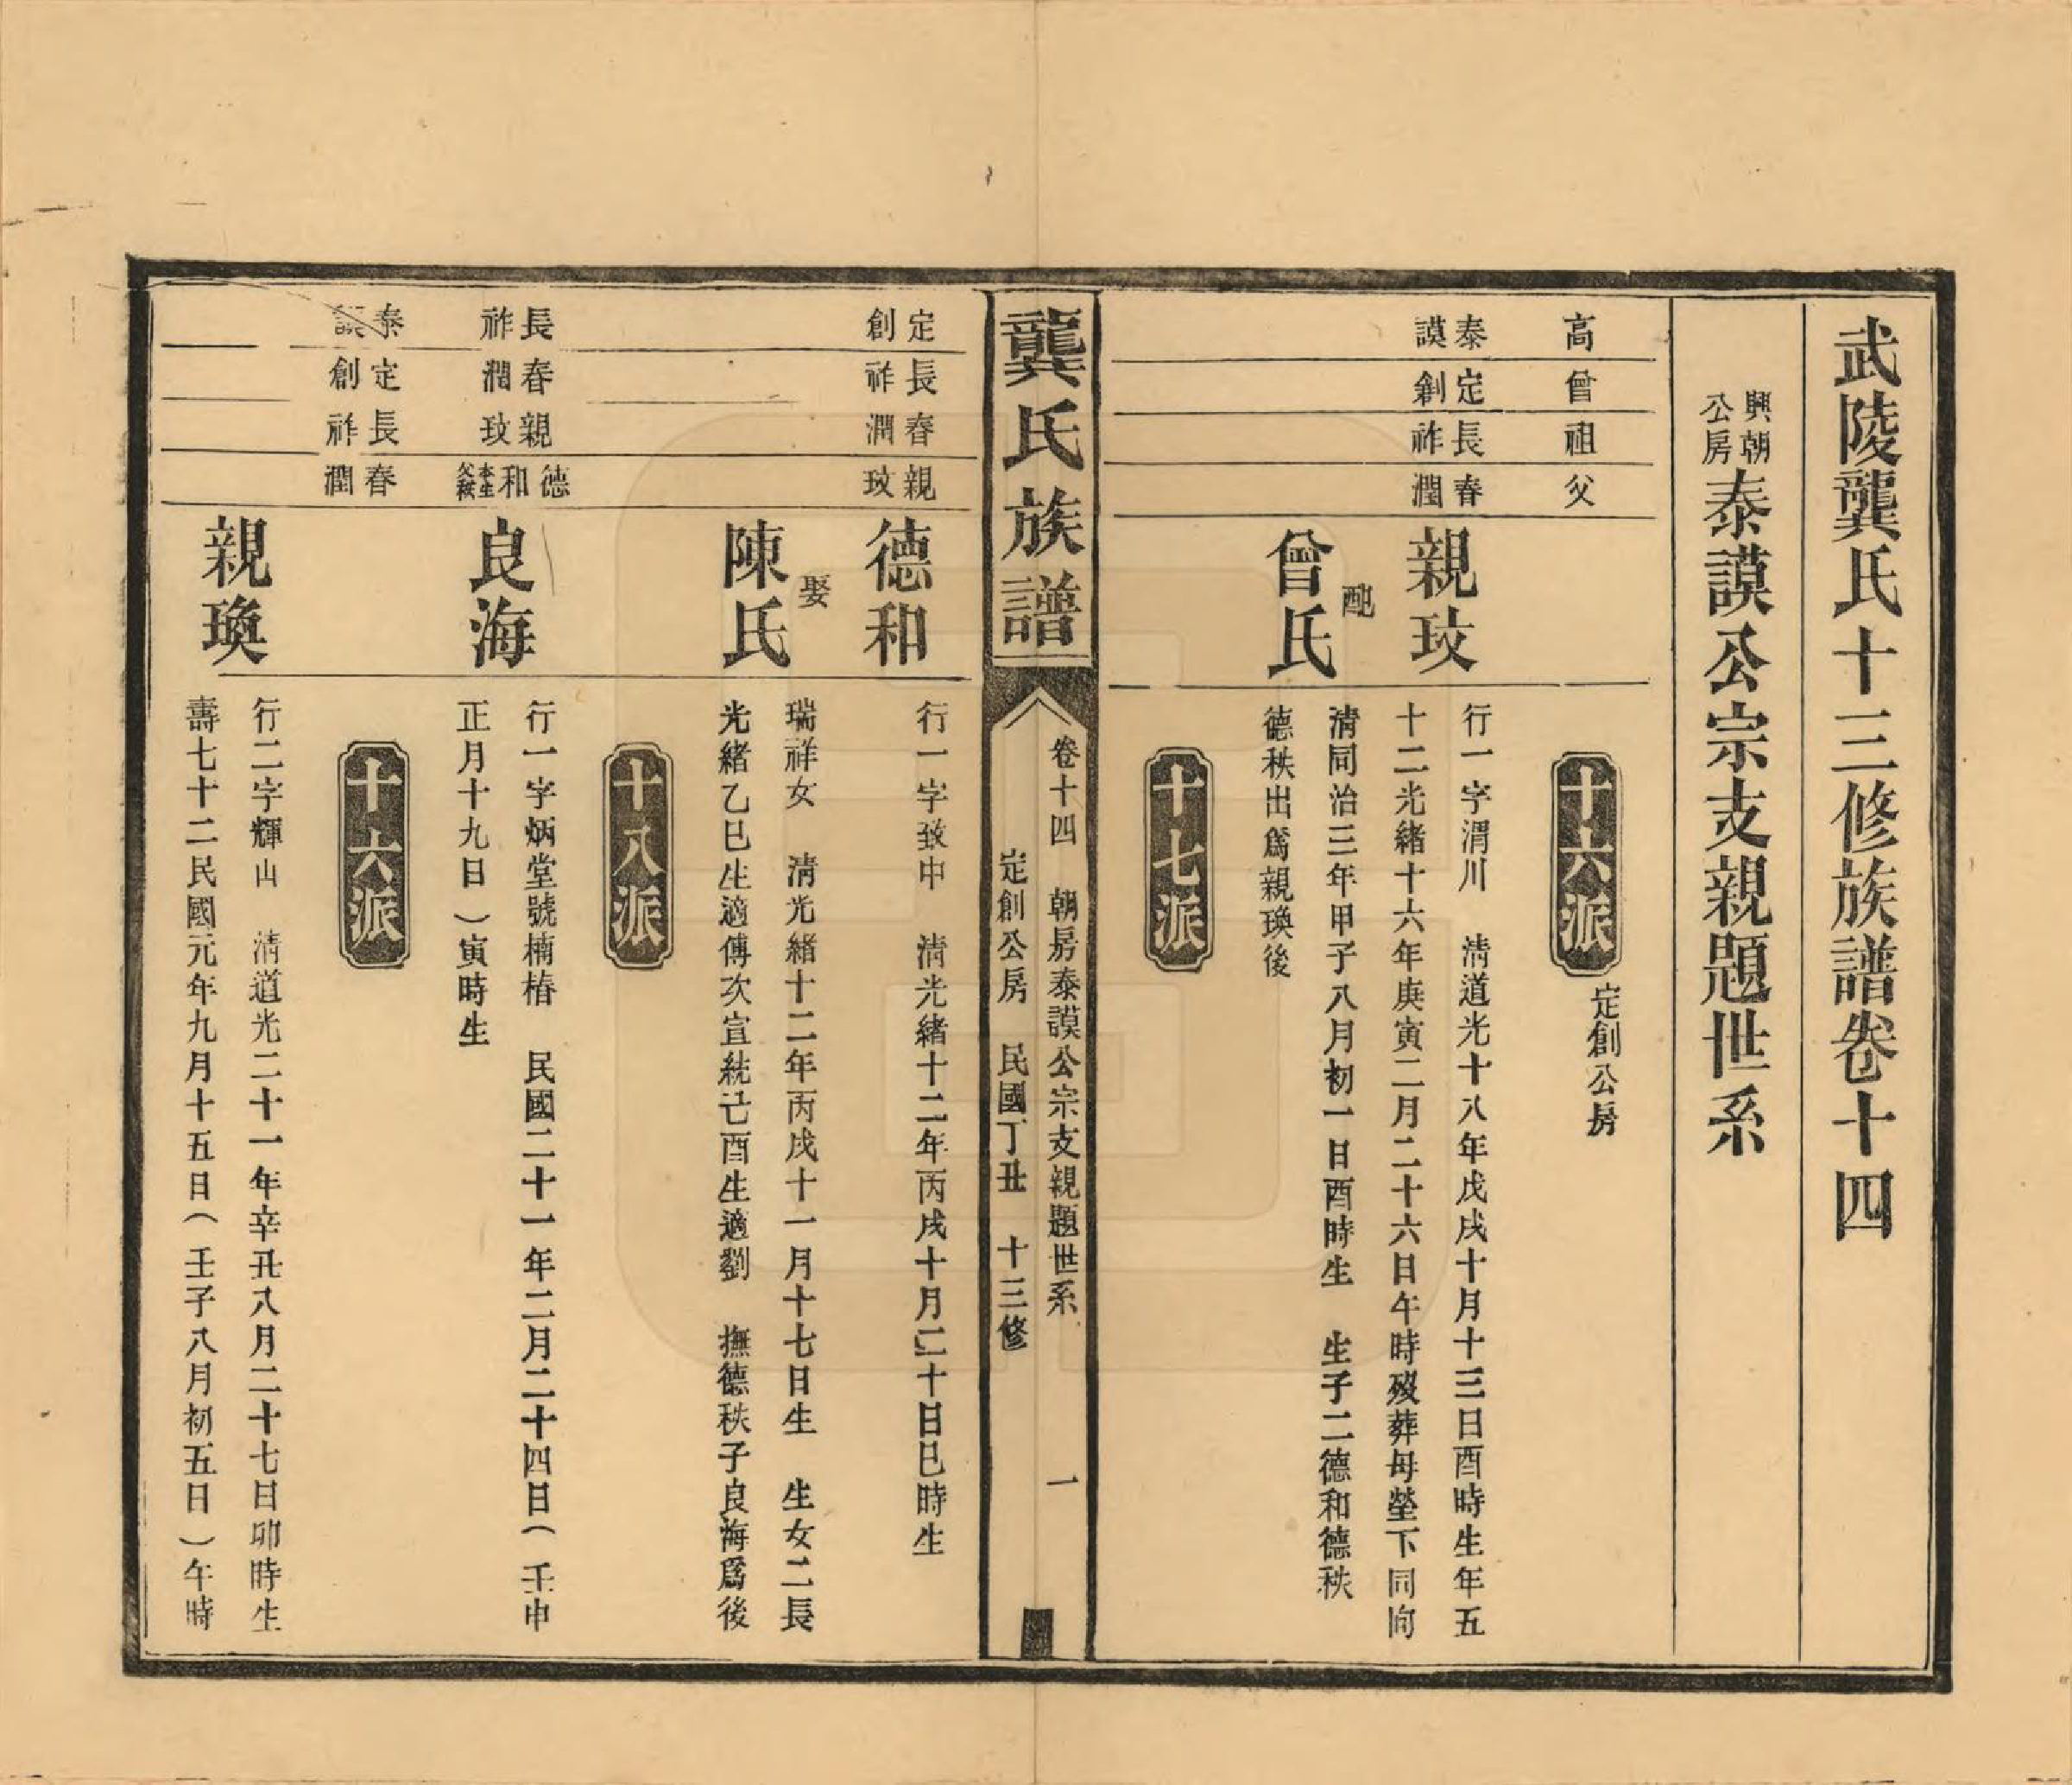 武陵龔氏十三修族譜卷十四
興朝公房泰謨公宗支親題世系
高
曾
祖
父
十六派
定創公房
泰謨
定創
長祚
春潤
親玟
行一字渭川　清道光十八年戊戌十月十三日酉時生年五
十二光緒十六年庚寅二月二十六日午時歿葬母塋下同向
配
曾氏
清同治三年甲子八月初一日酉時生　生子二德和德秩
德秩出爲親瑍後
十七派
龔氏族譜
卷十四　朝房泰謨公宗支親題世系　一
定創公房　民國丁丑　十三修
定創
長祚
春潤
親玟
德和
行一字致中　清光緒十二年丙戌十月二十日巳時生
娶
陳氏
瑞祥女　清光緒十二年丙戌十一月十七日生　生女二長
光緒乙巳生適傅次宣統己酉生適劉　撫德秩子良海爲後
十八派
長祚
春潤
親玟
德和
本生父德秩
良海
行一字炳堂號楠椿　民國二十一年二月二十四日（壬申
正月十九日）寅時生
十六派
泰謨
定創
長祚
春潤
親瑍
行二字輝山　清道光二十一年辛丑八月二十七日卯時生
壽七十二民國元年九月十五日（壬子八月初五日）午時